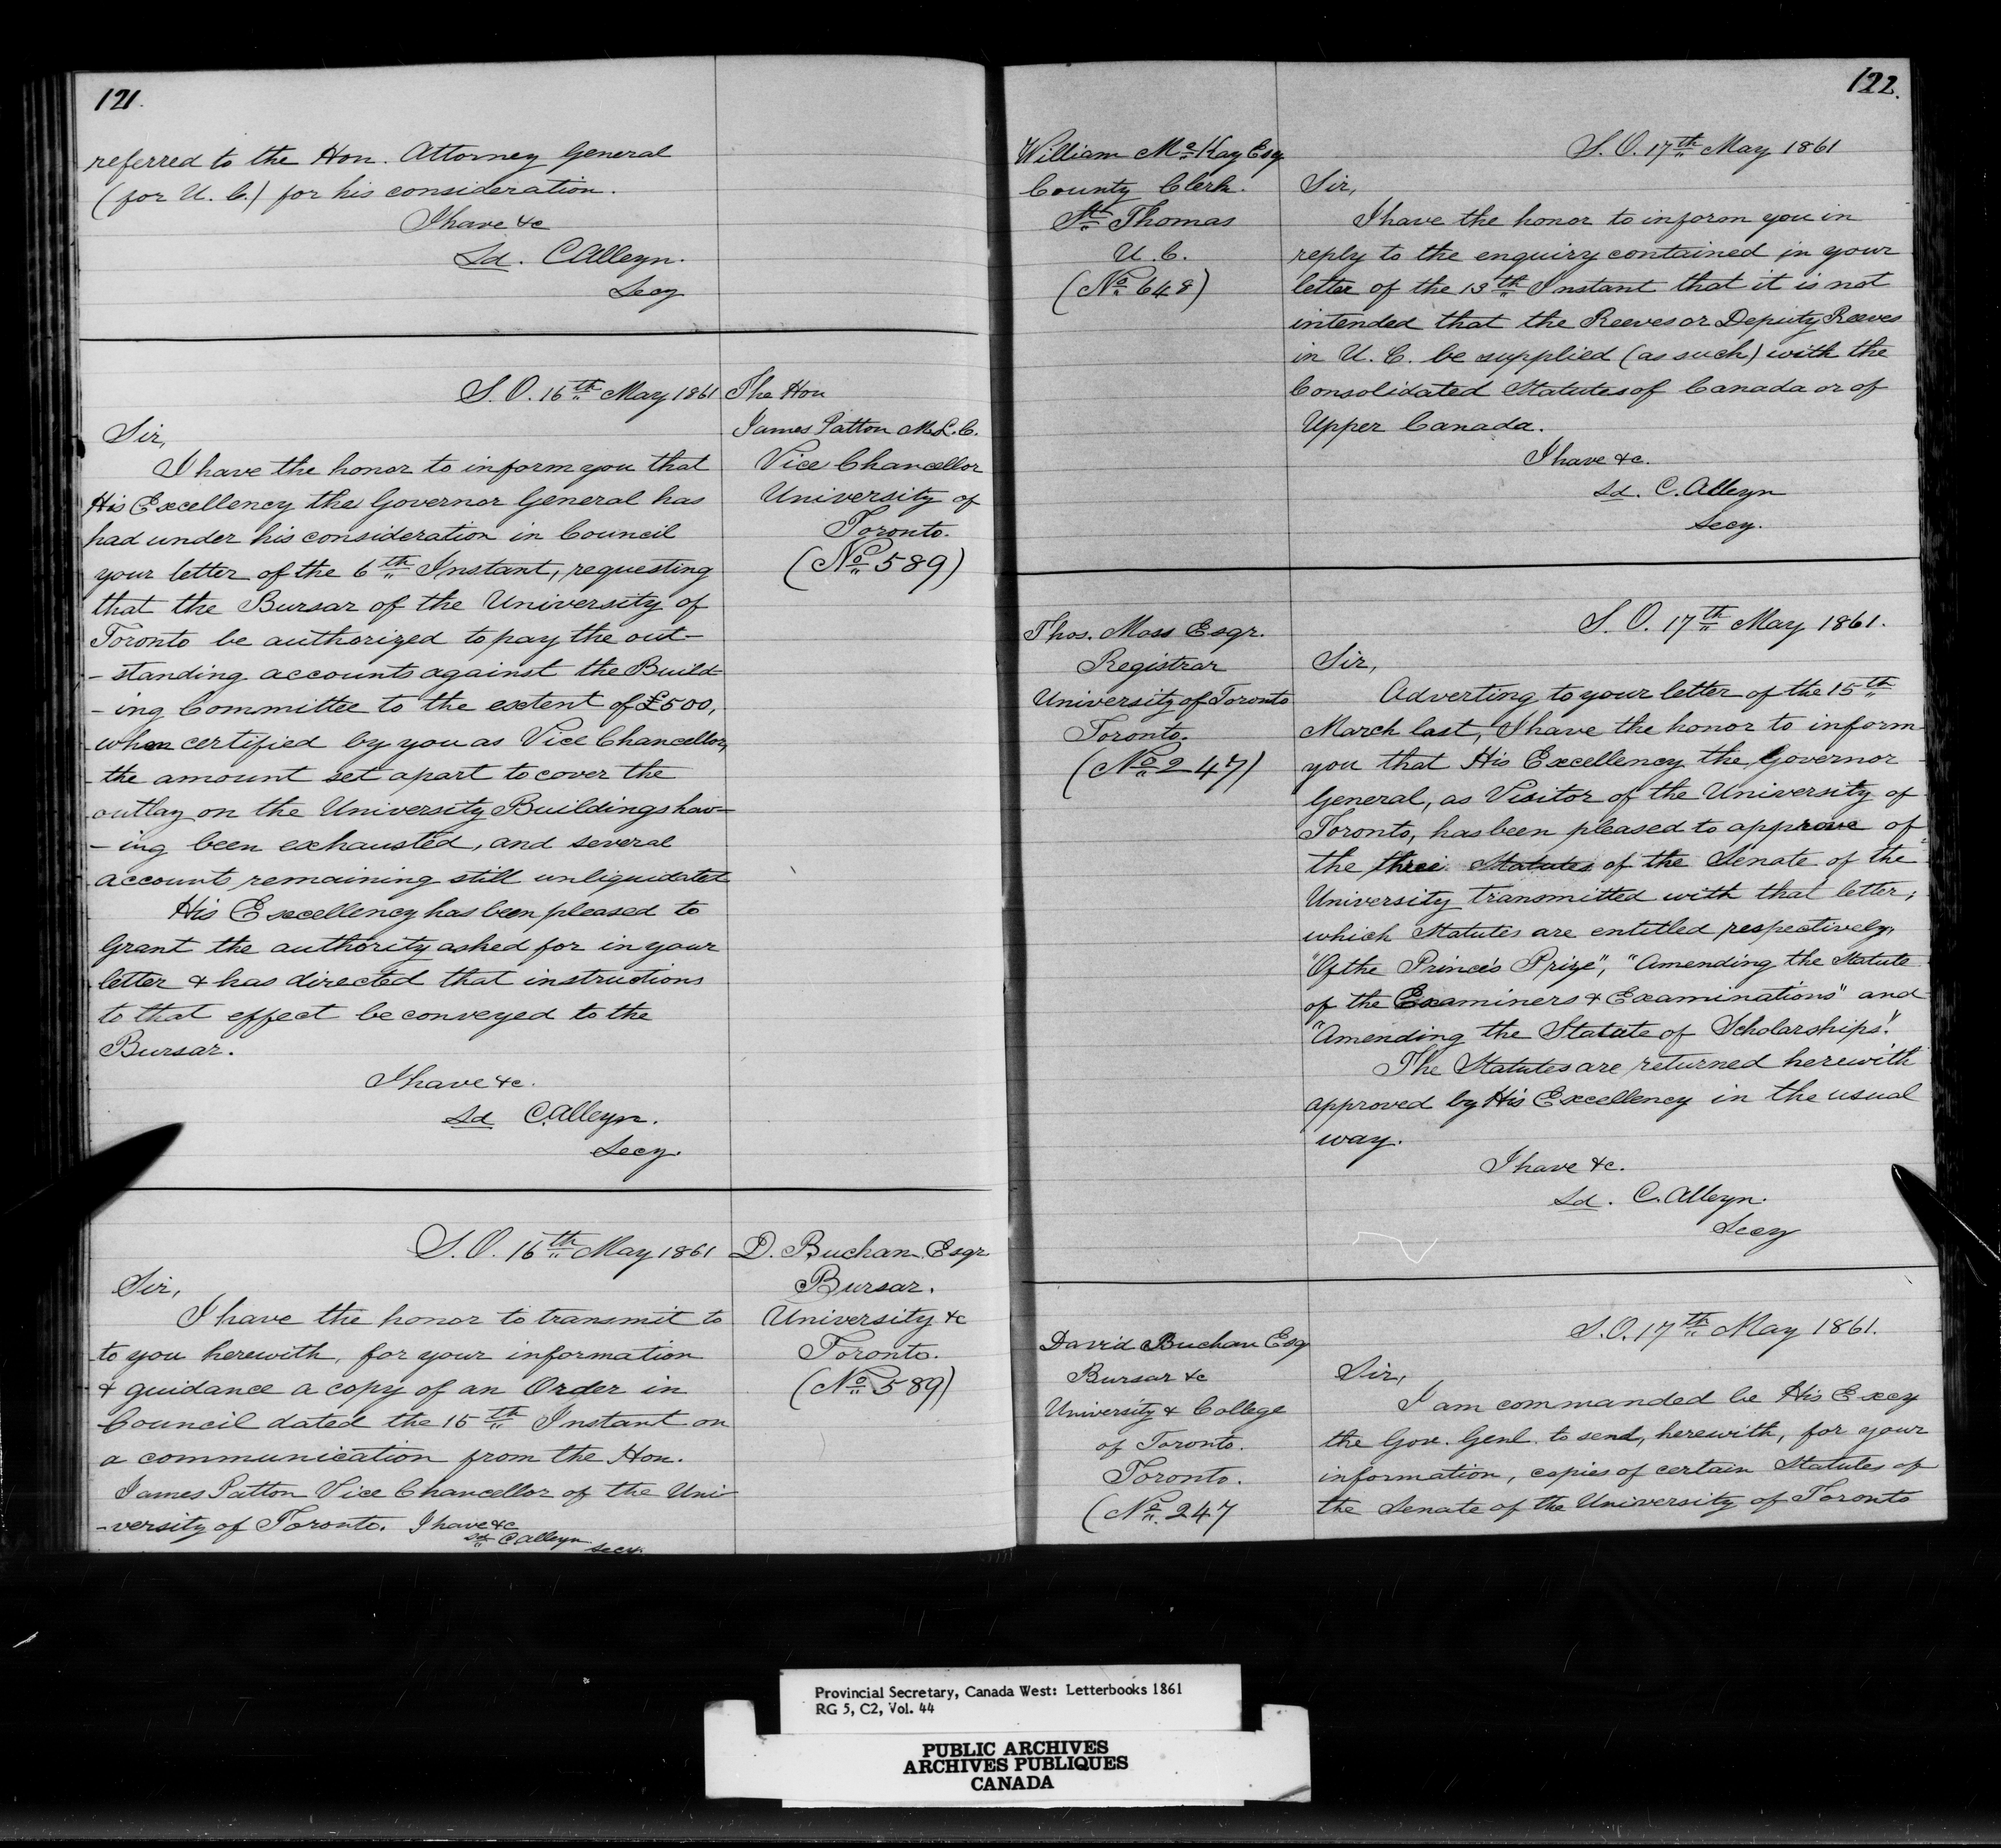 121.
referred to the Hon. Attorney General
(for U. C.) for his consideration.
I have &c
Sd. C Alleyn.
Secy
S. O. 16th May 1861
The Hon
James Patton M.L.C.
Vice Chancellor
University of
Toronto.
(No 589)
Sir,
I have the honor to inform you that
His Excellency the Governor General has
had under his consideration in Council
your letter of the 6th Instant, requesting
that the Bursar of the University of
Toronto be authorized to pay the out-
-standing accounts against the Build-
-ing Committee to the extent of £500,
when certified by you as Vice Chancellor,
the amount set apart to cover the
outlay on the University Buildings hav-
-ing been exhausted, and several
accounts remaining still unliquidated
His Excellency has been pleased to
Grant the authority asked for in your
letter & has directed that instructions
to that effect be conveyed to the
Bursar.
I have &c.
Sd C. Alleyn.
Secy.
S. O. 16th May 1861
D. Buchan Esqr
Bursar.
University &c
Toronto.
(No 589)
Sir,
I have the honor to transmit to
to you herewith, for your information
& guidance a copy of an Order in
Council dated the 15th Instant on
a communication from the Hon.
James Patton Vice Chancellor of the Uni-
-versity of Toronto. I have &c
Sd C Alleyn
Secy.
122.
William McKay Esq
County Clerk.
St Thomas
U. C.
(No 648)
S. O. 17th May 1861
Sir,
I have the honor to inform you in
reply to the enquiry contained in your
letter of the 13th Instant that it is not
intended that the Reeves or Deputy Reeves
in U. C. be supplied (as such) with the
Consolidated Statutes of Canada or of
Upper Canada.
I have &c.
Sd. C. Alleyn
Secy.
Thos. Moss Esqr.
Registrar
University of Toronto
Toronto.
(No 247)
S. O. 17th May 1861.
Sir,
Adverting to your letter of the 15th
March last, I have the honor to inform
you that His Excellency the Governor
General, as Visitor of the University of
Toronto, has been pleased to approve of
the three Statutes of the Senate of the
University transmitted with that letter;
which Statutes are entitled respectively,
"Of the Prince's Prize", "Amending the Statute
of the Examiners & Examinations" and
"Amending the Statute of Scholarships."
The Statutes are returned herewith
approved by His Excellency in the usual
way.
I have &c.
Sd. C. Alleyn.
Secy
David Buchan Esq
Bursar &c
University & College
of Toronto.
Toronto.
(No. 247
S. O. 17th May 1861.
Sir,
I am commanded be His Excy
the Gov. Genl. to send, herewith, for your
information, copies of certain Statutes of
the Senate of the University of Toronto
Provincial Secretary, Canada West: Letterbooks 1861
RG 5, C2, Vol. 44
PUBLIC ARCHIVES
ARCHIVES PUBLIQUES
CANADA